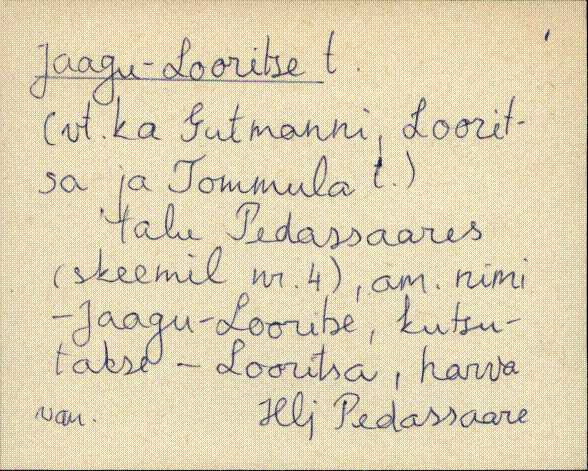 Jaagu-Looritse t.
(vt. ka Gutmanni, Loorit-
sa ja Tommula t.)
talu Pedassaares
(skeemil nr. 4), am. nimi
-Jaagu-Looritse, kutsu-
takse - Looritsa, harva
van. Hlj Pedassaare